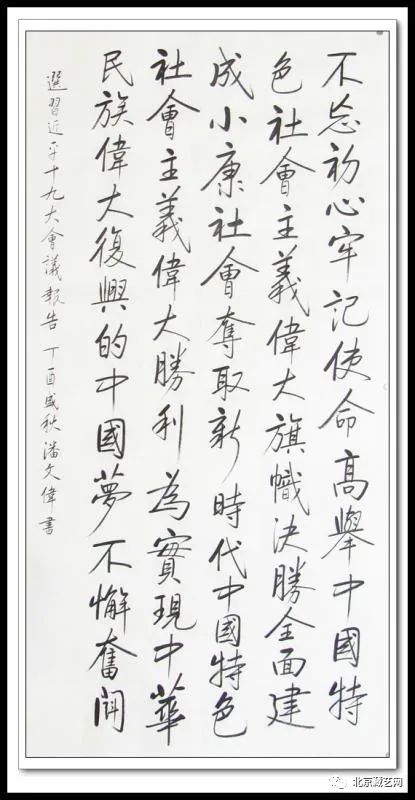 不忘初心牢記使命高舉中國特
色社會主義偉大旗幟決勝全面建
成小康社會奪取新時代中國特色
社會主義偉大勝利為實現中華
民族偉大復興的中國夢不懈奮鬥
選習近平十九大會議報告 丁酉盛秋潘文偉書
北京藏艺网